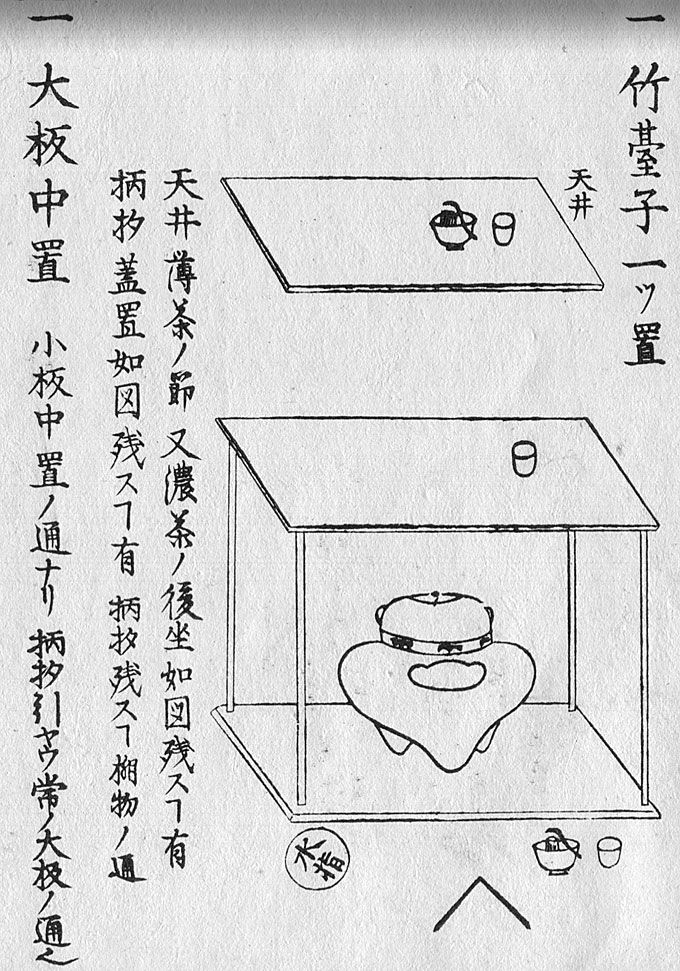 一 竹䑓子一ツ置
天井
水指
天井 薄茶ノ節 又濃茶ノ後坐如図残スヿ有
柄杓 蓋置如図残スヿ有 柄杓残スヿ棚物ノ通
一 大板中置 小板中置ノ通ナリ 柄杓引ヤウ常ノ大板ノ通也